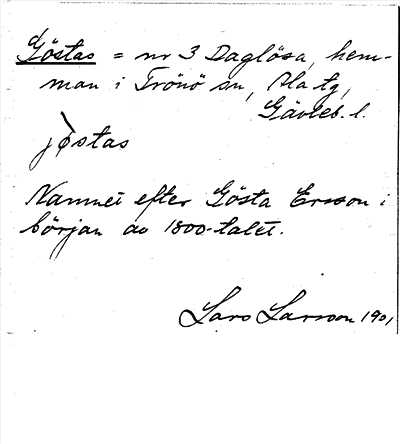 Göstas = nr 3 Daglösa, hem-
man i Trönö sn, Ala tg,
Gävleb. l.
jòstas
Namnet efter Gösta Ersson i
början av 1800-talet.
Lars Larsson 1901